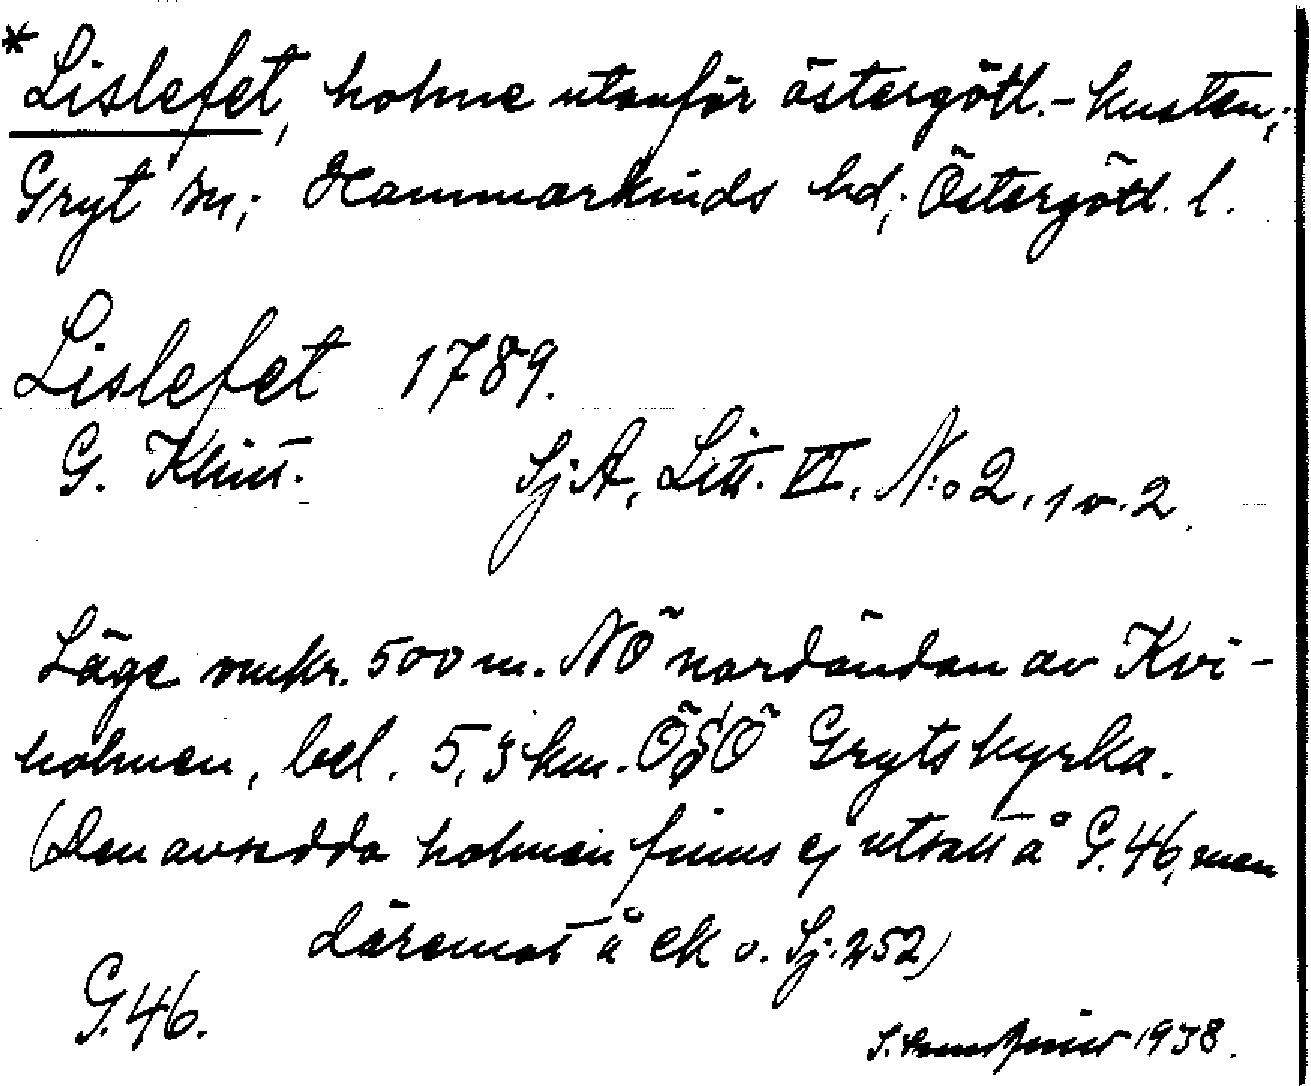 * Lislefet, holme utanför östergötl.-kusten;
Gryt sn; Hammarkinds hd; Östergötl. l.
Lislefet 1789.
G. Klint. SjA, Litt. VI, N:o 2, 1 o. 2.
Läge omkr. 500 m. NÖ nordändan av Kvi-
holmen, bel. 5,3 km. ÖSÖ Gryts kyrka.
(Den avsedda holmen finns ej utsatt å G. 46, men
däremot å ek o. Sj. 252)
G. 46.
1938.